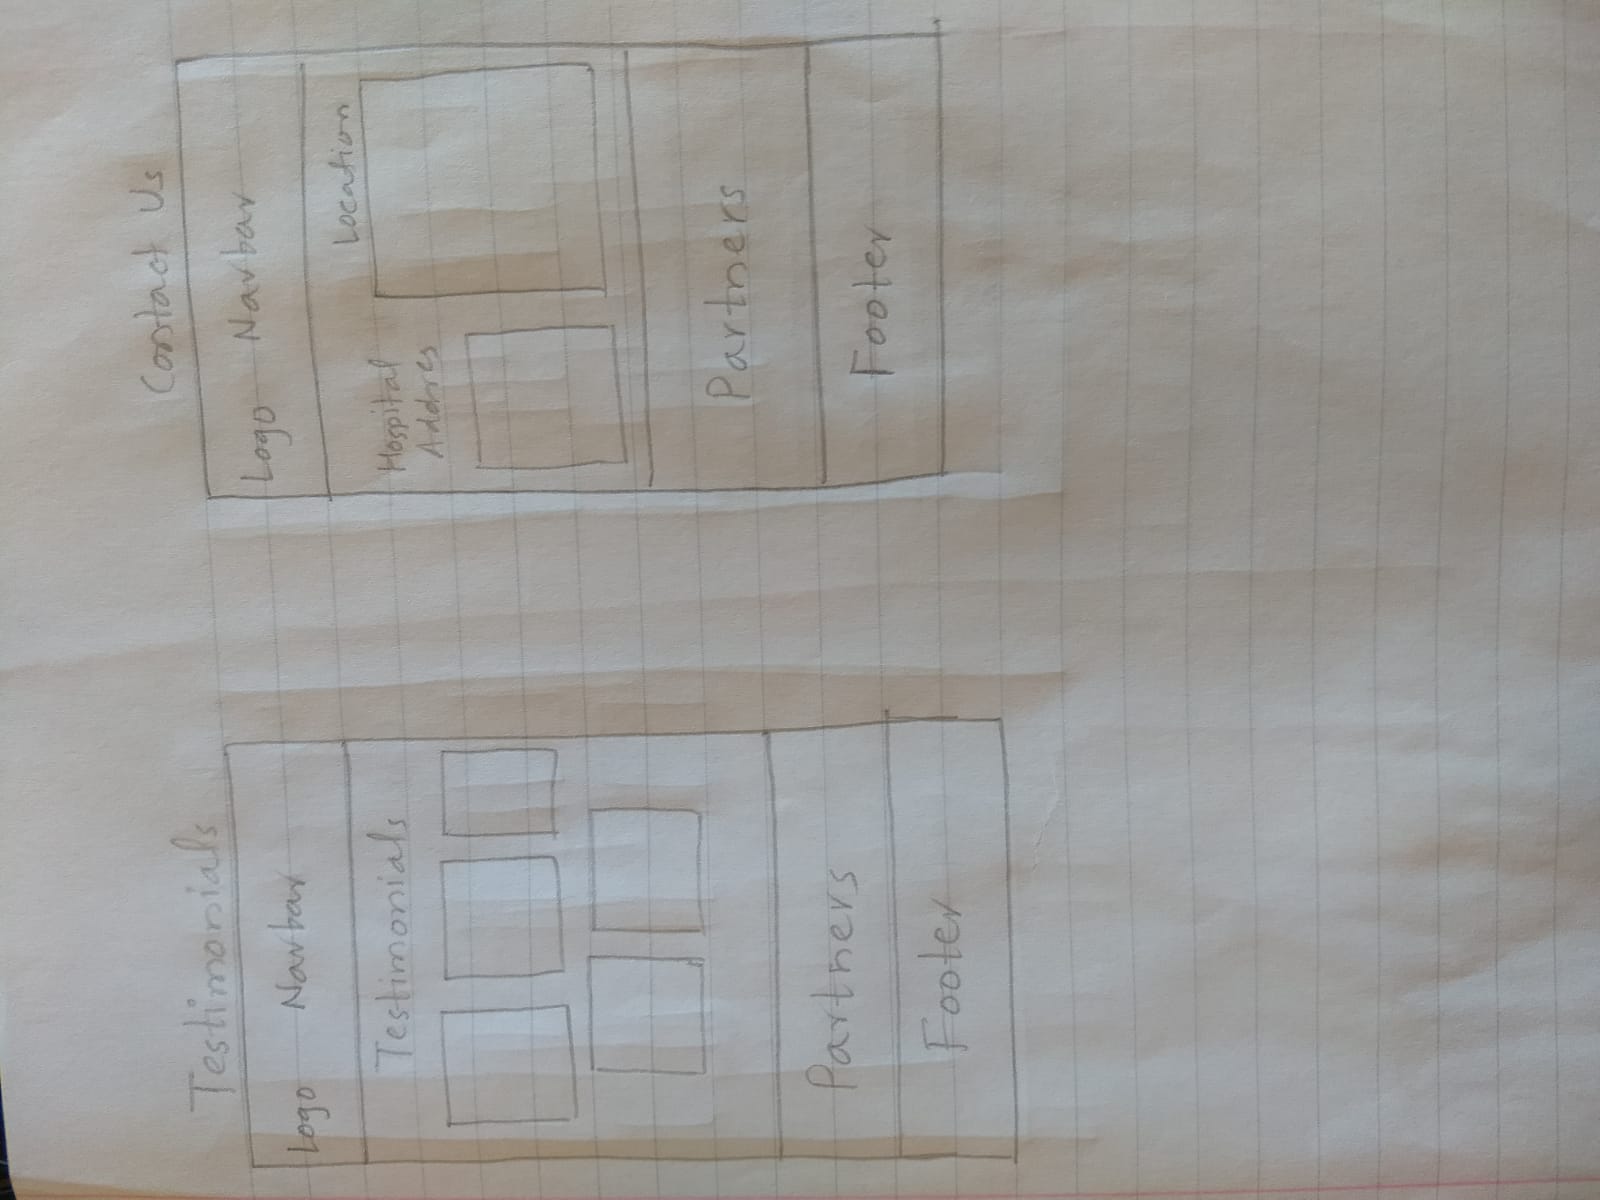 Testimonials
Logo Navbar
Testimonials
Partners
Footer
Contact Us
Logo Navbar
Location
Hospital
Addres
Partners
Footer